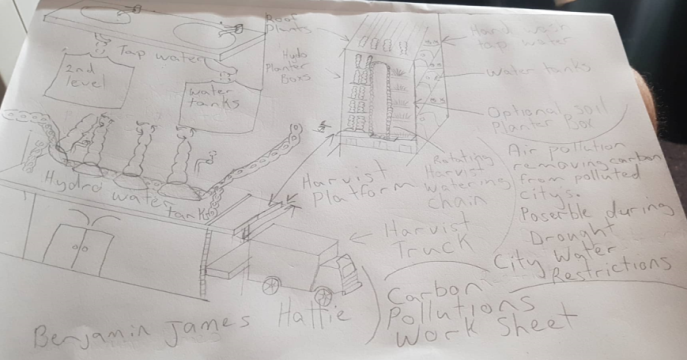 Tap water
2nd
level
water
tanks
Hydro water
tank
Roof
Plants
Hub
Planter
Boxs
tap water
Water tanks
Optional soil
Planter box
Rotating
Harvist
Watering
Chain
Harvist
Platform
Harvist
Truck
Air pollution
removing carbon
from polluted
citys.
Posetble during
Drought
City Water
Restrictions
Carbon
Pollutions
Work Sheet
Benjamin James Hattie